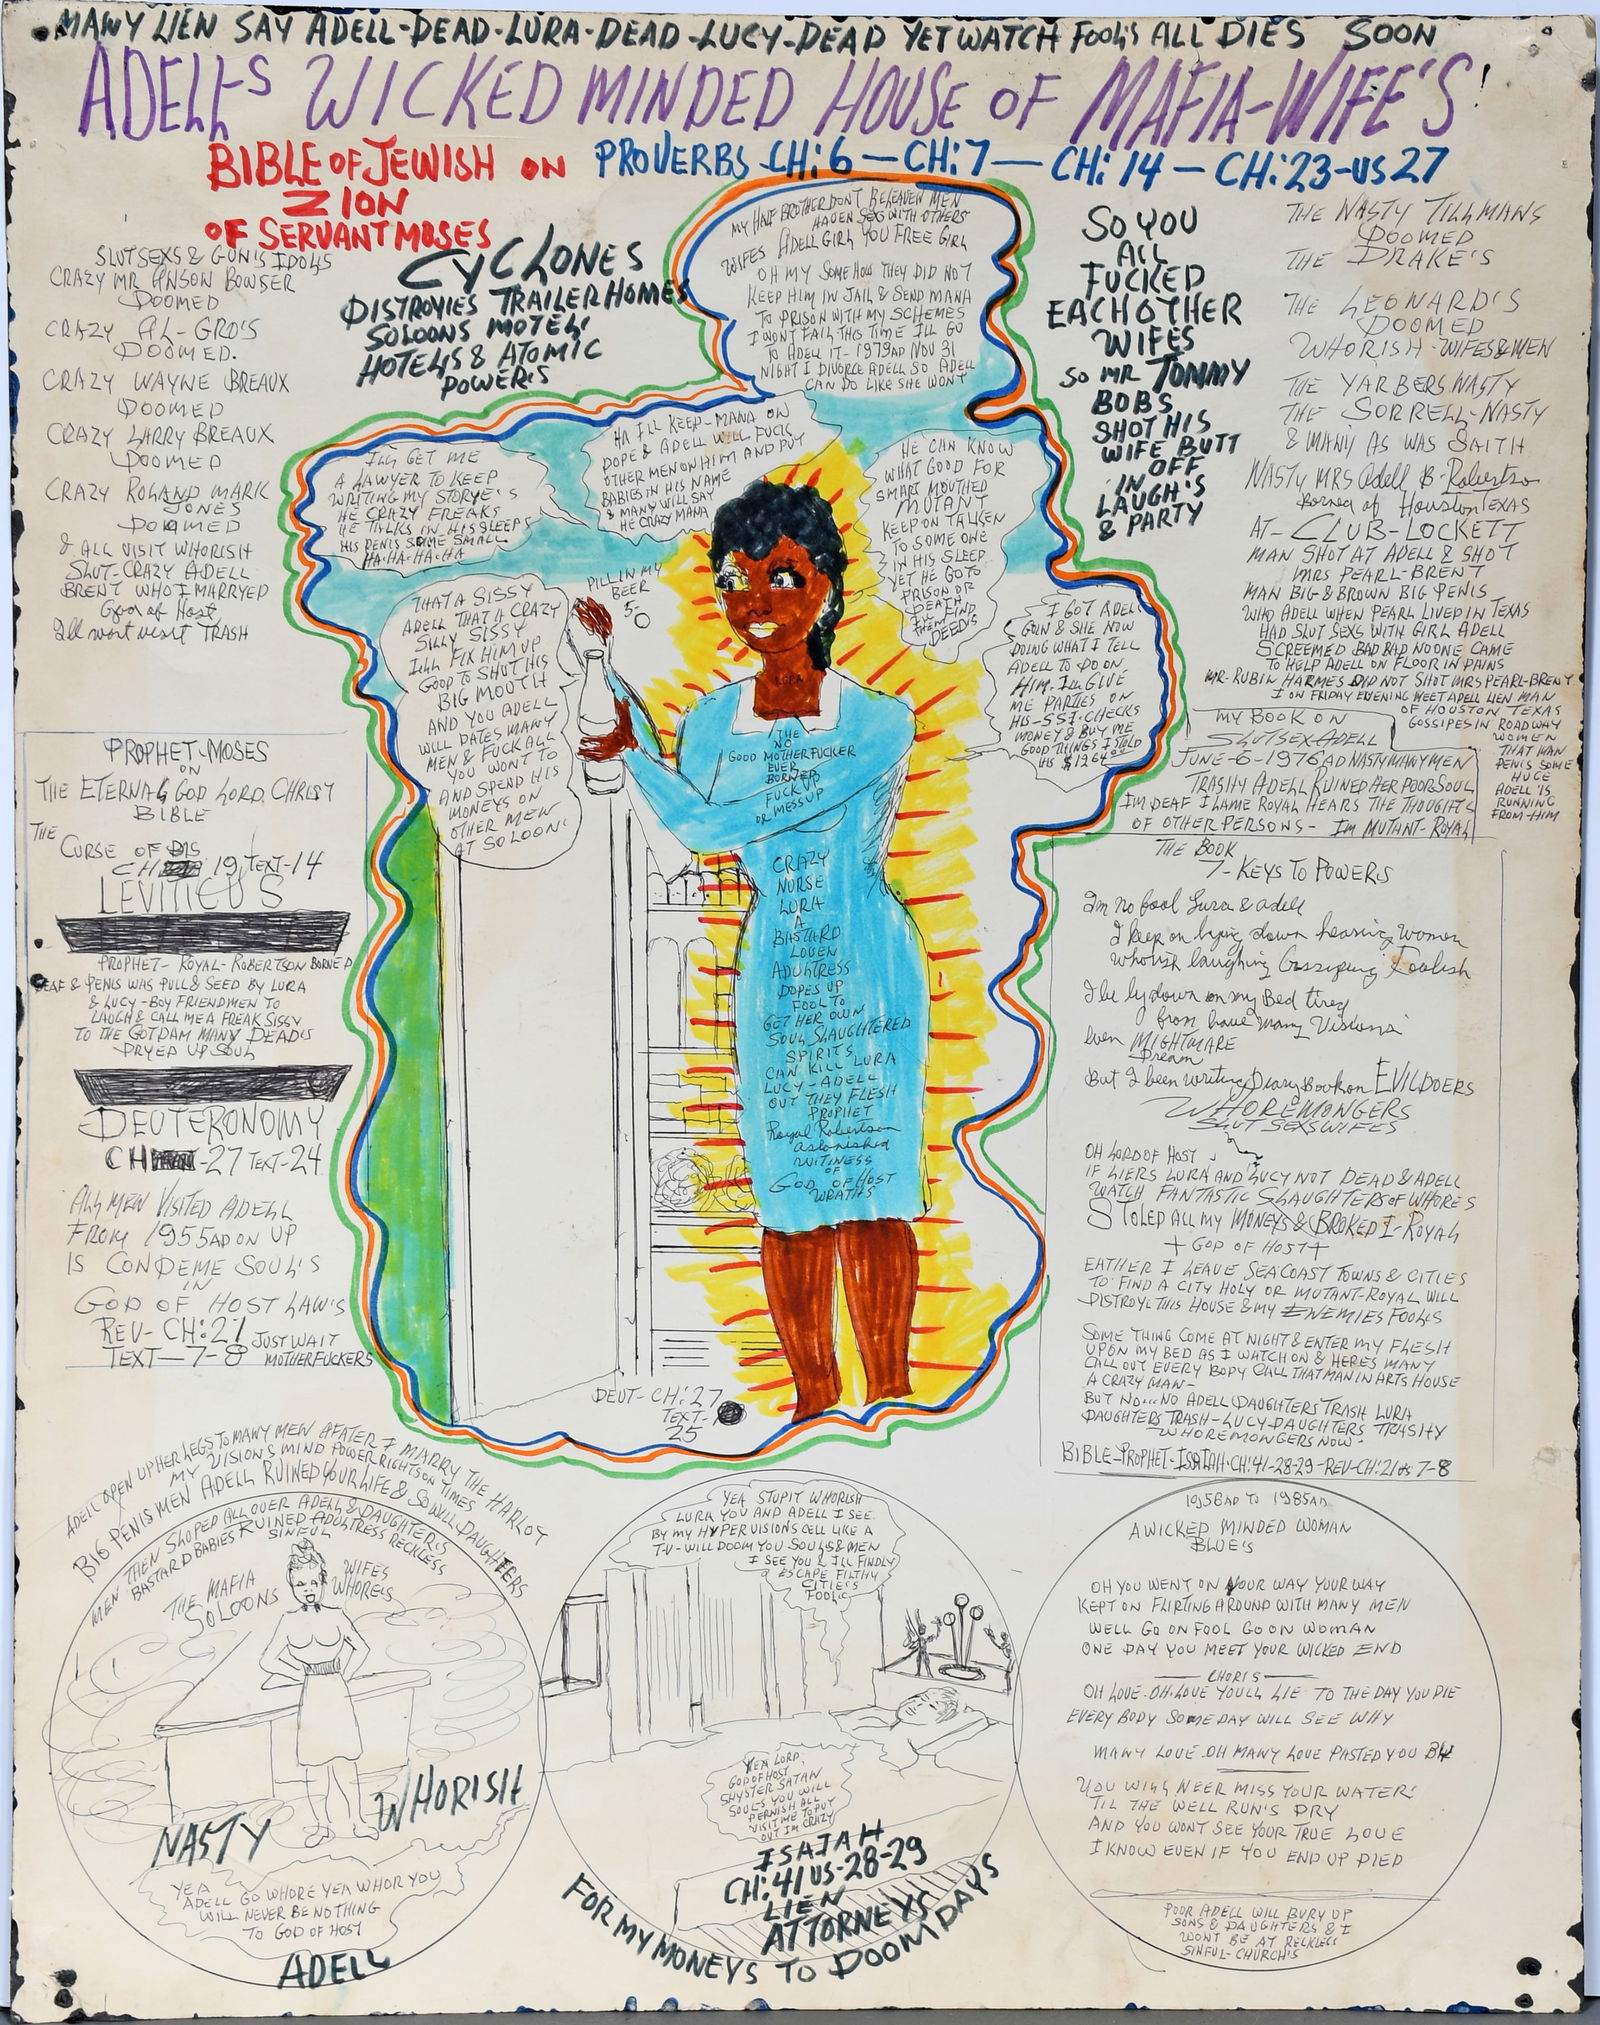 MANY LIEN SAY ADELL-DEAD-LURA-DEAD-LUCY-DEAD YET WATCH FOOL'S ALL DIES SOON
ADELL'S WICKED MINDED HOUSE OF MAFIA-WIFE'S!
BIBLE OF JEWISH ON
ZION
OF SERVANT MOSES
PROVERBS CH:6 — CH:7 — CH:14 — CH:23-US 27
SLUTSEXS & GUN'S IDOLS
CRAZY MR ANSON BOWSER
DOOMED
CRAZY AL-GRO'S
DOOMED.
CRAZY WAYNE BREAUX
DOOMED
CRAZY LARRY BREAUX
DOOMED
CRAZY ROLAND MARK
JONES
DOOMED
& ALL VISIT WHORISH
SLUT-CRAZY ADELL
BRENT WHO I MARRYED
God of Host
TRASH
CYCLONES
DISTROYIES TRAILER HOMES
SOLOONS MOTELS
HOTELS & ATOMIC
POWERS
MY HALF BROTHER DONT BELEAVEN MEN
HAVEN SEXS WITH OTHERS
WIFES ADELL GIRL YOU FREE GIRL
OH MY SOMEHOW THEY DID NOT
KEEP HIM IN JAIL & SEND MANA
TO PRISON WITH MY SCHEMES
I WONT FAIL THIS TIME ILL GO
TO ADELL IT-1973AD NOV 31
NIGHT I DIVORCE ADELL SO ADELL
CAN DO LIKE SHE WONT
SO YOU
ALL
FUCKED
EACHOTHER
WIFES
SO MR TOMMY
BOBS
SHOT HIS
WIFE BUTT
OFF
IN
LAUGH'S
& PARTY
THE NASTY TILLMANS
DOOMED
THE DRAKE'S
THE LEONARD'S
DOOMED
WHORISH-WIFES & MEN
THE YARBERS NASTY
THE SORRELL-NASTY
& MANY AS WAS SAITH
NASTY MRS Adell B. Robertson
Borned of Houston TEXAS
AT-CLUB-LOCKETT
MAN SHOT AT ADELL & SHOT
MRS PEARL-BRENT
MAN BIG & BROWN BIG PENIS
WHO ADELL WHEN PEARL LIVED IN TEXAS
HAD SLUT SEXS WITH GIRL ADELL
SCREEMED BAD BAD NO ONE CAME
TO HELP ADELL ON FLOOR IN PAINS
MR-RUBIN HARMES DID NOT SHOT MRS PEARL-BRENT
I ON FRIDAY EVENING MEET ADELL LIEN MAN
OF HOUSTON TEXAS
GOSSIPES IN ROADWAY
WOMEN
THAT MAN
PENIS SOME
HUGE
ADELL IS
RUNNING
FROM-HIM
ILL GET ME
A LAWYER TO KEEP
WRITING MY STORYE'S
HE CRAZY FREAKS
HE TALKS IN HIS SLEEPS
HIS PENIS SOME SMALL
HA-HA-HA-HA
HA ILL KEEP-MANA ON
DOPE & ADELL WILL FUCK
OTHER MEN ON HIM AND PUT
BABIES IN HIS NAME
& MANY WILL SAY
HE CRAZY MANA
HE CAN KNOW
WHAT GOOD FOR
SMART MOUTHED
MUTANT
KEEP ON TALKEN
TO SOME ONE
IN HIS SLEEP
YET HE GO TO
PRISON OR
DEATH
ILL FIND
THEM
DEEDIS
THAT A SISSY
ADELL THAT A CRAZY
SILLY SISSY
ILL FIX HIM UP
GOOD TO SHUT HIS
BIG MOUTH
AND YOU ADELL
WILL DATES MANY
MEN & FUCK ALL
YOU WONT TO
AND SPEND HIS
MONEYS ON
OTHER MEN
AT SOLOON'
PILL IN MY
BEER
5-O
I GOT ADELL
GOIN & SHE NOW
DOING WHAT I TELL
ADELL TO DO ON
HIM. ILL GIVE
ME PARTIES ON
HIS-SSI-CHECKS
MONEY & BUY ME
GOOD THINGS I STOLD
HIS $1264.00
LURA
THE
NO
GOOD MOTHERFUCKER
EVER
BORNED
FUCK UP
OR MESS UP
CRAZY
NURSE
LURA
A
BASTARD
LOVEN
ADULTRESS
DOPES UP
FOOL TO
GET HER OWN
SOUL SLAUGHTERED
SPIRITS
CAN KILL LURA
LUCY-ADELL
OUT THEY FLESH
PROPHET
Royal Robertson
astonished
WITINESS
OF
GOD OF HOST
WRATHS
DEUT-CH:27
TEXT-
25
MY BOOK ON
SLUTSEX ADELL
JUNE-6-1976AD NASTY MANY MEN
TRASHY ADELL RUINED HER POOR SOUL
IM DEAF I LAME ROYAL HEARS THE THOUGHTS
OF OTHER PERSONS- IM MUTANT-ROYAL
PROPHET-MOSES
ON
THE ETERNAL GOD LORD CHRIST
BIBLE
THE
CURSE OF DIS
CH 19, TEXT-14
LEVITICUS
PROPHET-ROYAL-ROBERTSON BORNED
DEAF & PENIS WAS PULL & SEED BY LURA
& LUCY-BOY FRIENDMEN TO
LAUGH & CALL ME A FREAK SISSY
TO THE GOTDAM MANY DEAD'S
DRYED UP SOUL
DEUTERONOMY
CH-27 TEXT-24
ALL MEN VISITED ADELL
FROM 1955AD ON UP
IS CONDEME SOUL'S
IN
GOD OF HOST LAW'S
REV-CH:21 JUST WAIT
TEXT-7-8 MOTHERFUCKERS
THE BOOK
7-KEYS TO POWERS
Im no fool Lura & adell
I keep on lying down hearing women
whorish laughing Gossiping Foolish
I be ly down on my Bed tired
from have many Visions
even MIGHTMARE
Dream
But I been writing Diary Book on EVILDOERS
WHOREMONGERS
SLUT SEXS WIFES
OH LORD OF HOST
IF LIERS LURA AND LUCY NOT DEAD & ADELL
WATCH FANTASTIC SLAUGHTERS OF WHORES
STOLED ALL MY MONEYS & BROKED I-ROYAL
+ GOD OF HOST +
EATHER I LEAVE SEACOAST TOWNS & CITIES
TO FIND A CITY HOLY OR MUTANT-ROYAL WILL
DISTROY THIS HOUSE & MY ENEMIES FOOLS
SOME THING COME AT NIGHT & ENTER MY FLESH
UPON MY BED AS I WATCH ON & HERES MANY
CALL OUT EVERY BODY CALL THAT MAN IN ARTS HOUSE
A CRAZY MAN-
BUT NO...NO ADELL DAUGHTERS TRASH LURA
DAUGHTERS TRASH-LUCY DAUGHTERS TRASHY
WHOREMONGERS NOW-
BIBLE-PROPHET-ISAIAH-CH:41-28-29-REV-CH:21 US 7-8
ADELL OPEN UP HER LEGS TO MANY MEN AFATER I MARRY THE HARLOT
MY VISIONS MIND POWER RIGHTS ON TIMES
BIG PENIS MEN ADELL RUINED YOUR LIFE & SO WILL DAUGHTERS
MEN THEN SLOPED ALL OVER ADELL & DAUGHTERS
BASTARD BABIES RUINED ADULTRESS RECKLESS
SINFUL
THE MAFIA
SOLOONS
WIFES
WHORES
NASTY
WHORISH
YEA
ADELL GO WHORE YEA WHOR YOU
WILL NEVER BE NOTHING
TO GOD OF HOST
ADELL
YEA STUPIT WHORISH
LURA YOU AND ADELL I SEE
BY MY HYPERVISIONS CELL LIKE A
T-V-WILL DOOM YOU SOULS & MEN
I SEE YOU & ILL FINDLY
ESCAPE FILTHY
CITIEIS
FOOLIC
YEA LORD
GOD OF HOST
SHYSTER SATAN
SOULS YOU WILL
PERNISH ALL
VISIT ME TO PUT
OUT IM CRAZY
ISAIAH
CH:41US-28-29
LIEN
ATTORNEYS
FOR MY MONEYS TO DOOM DAYS
1956AD TO 1985AD
A WICKED MINDED WOMAN
BLUE'S
OH YOU WENT ON YOUR WAY YOUR WAY
KEPT ON FLIRTING AROUND WITH MANY MEN
WELL GO ON FOOL GO ON WOMAN
ONE DAY YOU MEET YOUR WICKED END
CHORIS
OH LOVE-OH-LOVE YOULL LIE TO THE DAY YOU DIE
EVERY BODY SOMEDAY WILL SEE WHY
MANY LOVE OH MANY LOVE PASTED YOU BY
YOU WILL NEER MISS YOUR WATER'
TIL THE WELL RUN'S DRY
AND YOU WONT SEE YOUR TRUE LOVE
I KNOW EVEN IF YOU END UP DIED
POOR ADELL WILL BURY UP
SONS & DAUGHTERS & I
WONT BE AT RECKLESS
SINFUL-CHURCH'S